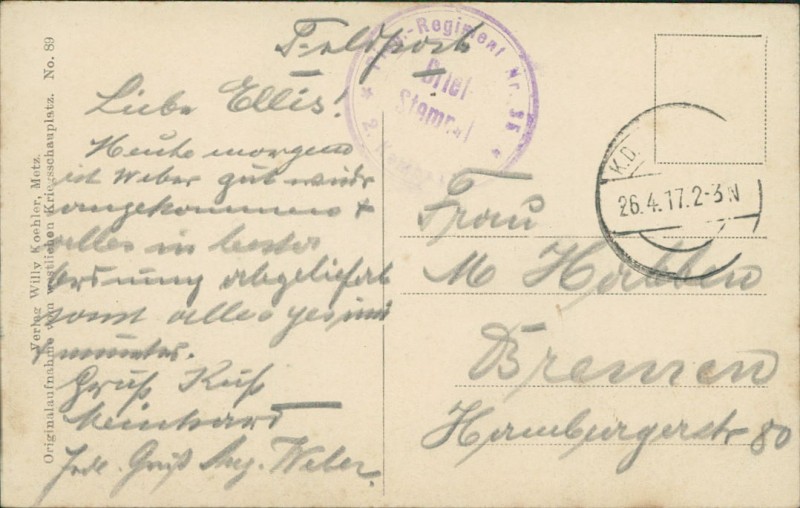 Feldpost
Liebe Ellis!
Heute morgen
ist Weber gut wieder
angekommen +
alles in bester
Ordnung abgeliefert
sonst alles gesund
+ munter.
Gruß Kuß
Meinhard
Frdl. Gruß Aug. Weber.
-Regiment Nr. 35
Brief-
Stempel
2.
K.D.
26.4.17.2-3N
Frau
M Habben
Bremen
Hamburgerstr 80
Verlag Willy Koehler, Metz.
Originalaufnahme vom westlichen Kriegsschauplatz. No. 89